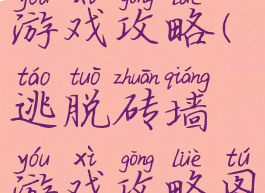 yóu xì gōng lüè
游戏攻略(
táo tuō zhuān qiáng
逃脱砖墙
yóu xì gōng lüè tú
游戏攻略图